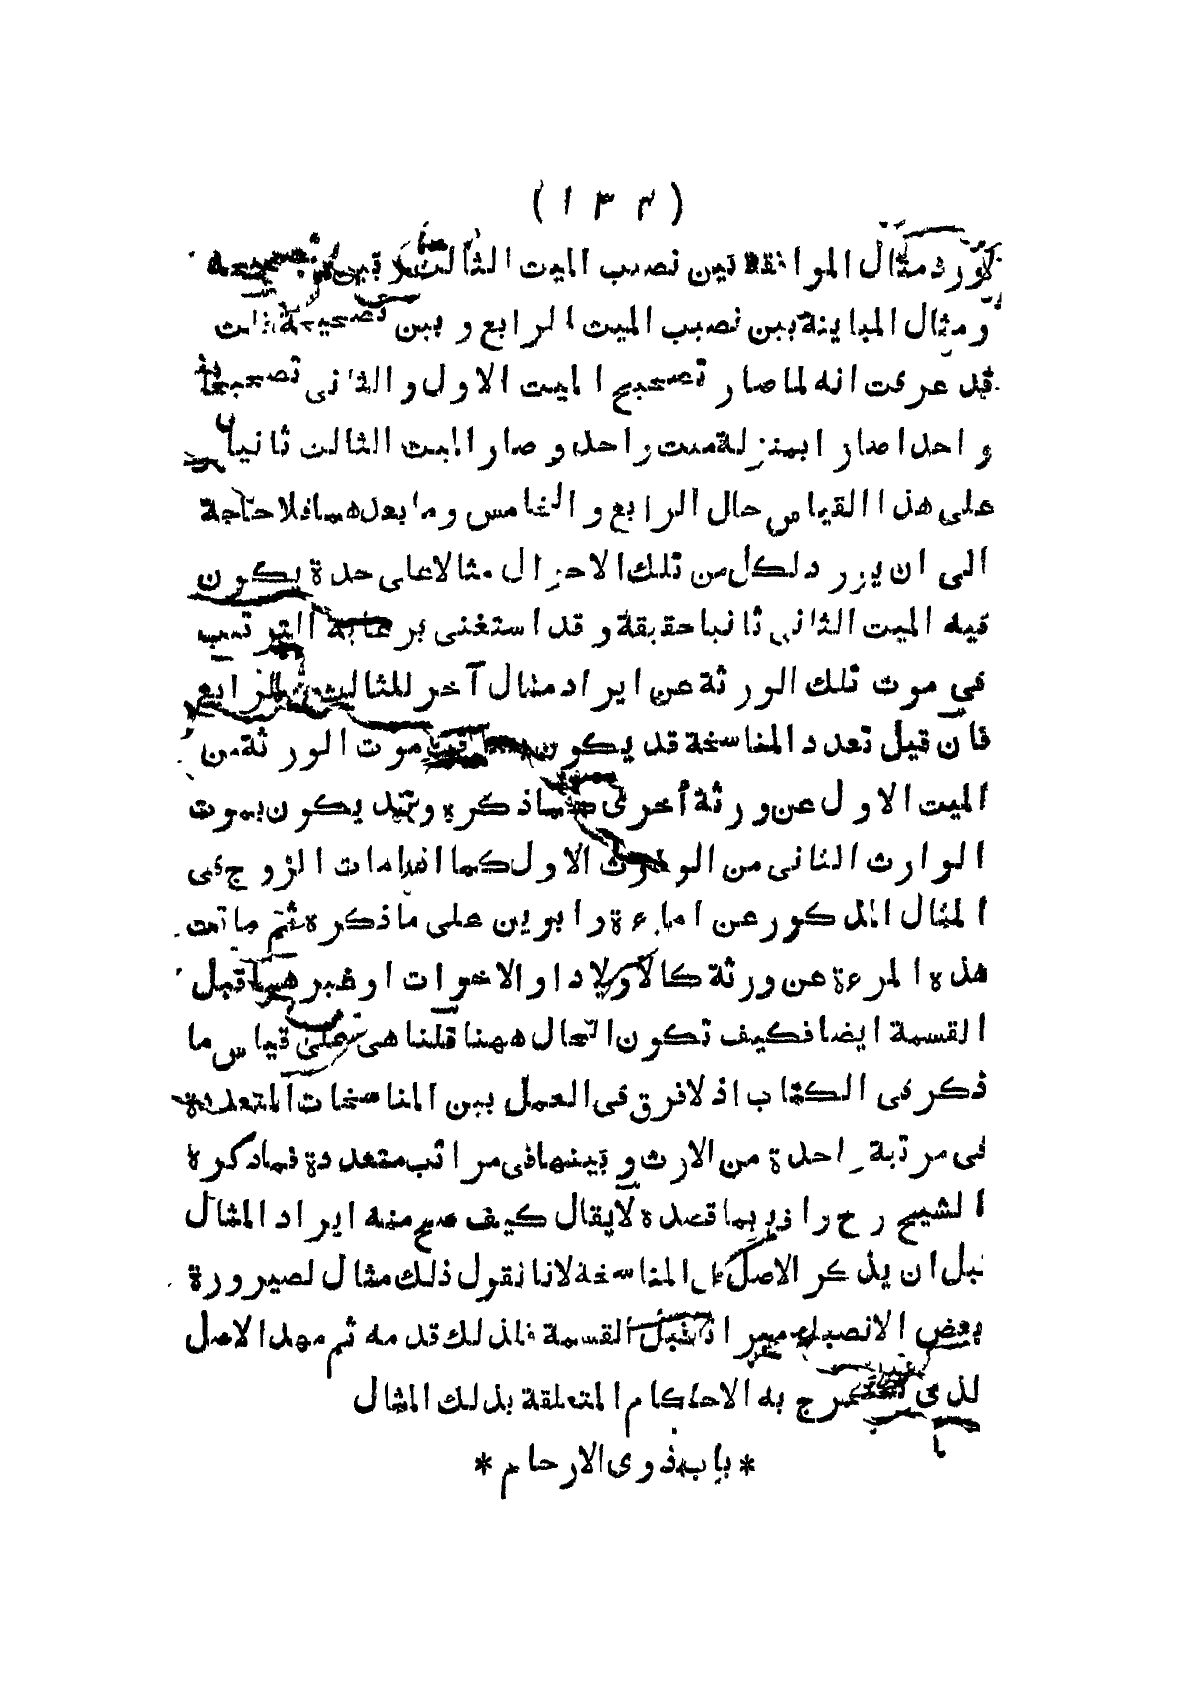 (١٣٤)
مثال الموافقة بين نصيب الميت الثالث وبين تصحيحه
ومثال المباينة بين نصيب الميت الرابع وبين تصحيحه
قد عرفت انه لما صار تصحيح الميت الاول والثانى تصحيحا
واحدا صارا بمنزلة ميت واحد و صار الميت الثالث ثانيا
على هذا القياس حال الرابع و الخامس وما بعدهما فلا حاجة
الى ان يورد لكل من تلك الاحوال مثالا على حدة يكون
فيه الميت الثانى ثانيا حقيقة و قد استغنى برعاية الترتيب
فى موت تلك الورثة عن ايراد مثال آخر للثالث والرابع
فان قيل تعدد المناسخة قد يكون موت الورثة من
الميت الاول عن ورثة أخرى كما ذكره وقد يكون بموت
الوارث الثانى من الوارث الاول كما اذا مات الزوج فى
المثال المذكور عن امرءة و ابوين على ما ذكره ثم ماتت
هذه المرءة عن ورثة كالاولاد او الاخوات او غيرهما قبل
القسمة ايضا فكيف تكون الحال ههنا قلنا هى على قياس ما
ذكر فى الكتاب اذ لا فرق فى العمل بين المناسخات المتعددة
فى مرتبة واحدة من الارث و بينها فى مراتب متعددة فما ذكره
الشيخ رح واف بما قصده لا يقال كيف صح منه ايراد المثال
قبل ان يذكر الاصل فى المناسخة لانا نقول ذلك مثال لصيرورة
بعض الانصباء ميراثا قبل القسمة فلذلك قدمه ثم مهد الاصل
لذى يستخرج به الاحكام المتعلقة بذلك المثال
* باب ذوى الارحام *